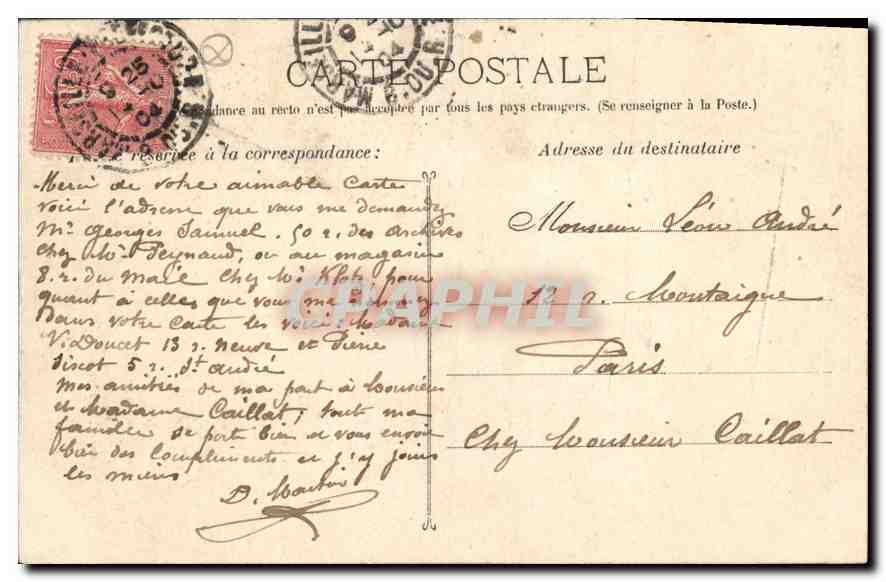 CARTE POSTALE
dance au recto n'est pas acceptée par tous les pays etrangers. (Se renseigner à la Poste.)
réservée à la correspondance:
Merci de votre aimable Carte
voici l'adresse que vous me demandez
Mr Georges Samuel. 50 r. des Archives
Chez Mr Peynaud, ou au magasin
8. r. du Mail Chez Mr Klotz pour
quant à celles que vous me
dans votre Carte les voici: Madame
V. Doucet 13 r. neuve et Pierre
Discot 5 r. St andré
Mes amitiés de ma part à Monsieur
et Madame Caillat; toute ma
famille se porte bien et vous envoie
bien des Compliments et j'y joins
les miens
D. Martin
Adresse du destinataire
Monsieur Léon André
12 r. Montaigne
Paris
Chez Monsieur Caillat
CPAPHIL